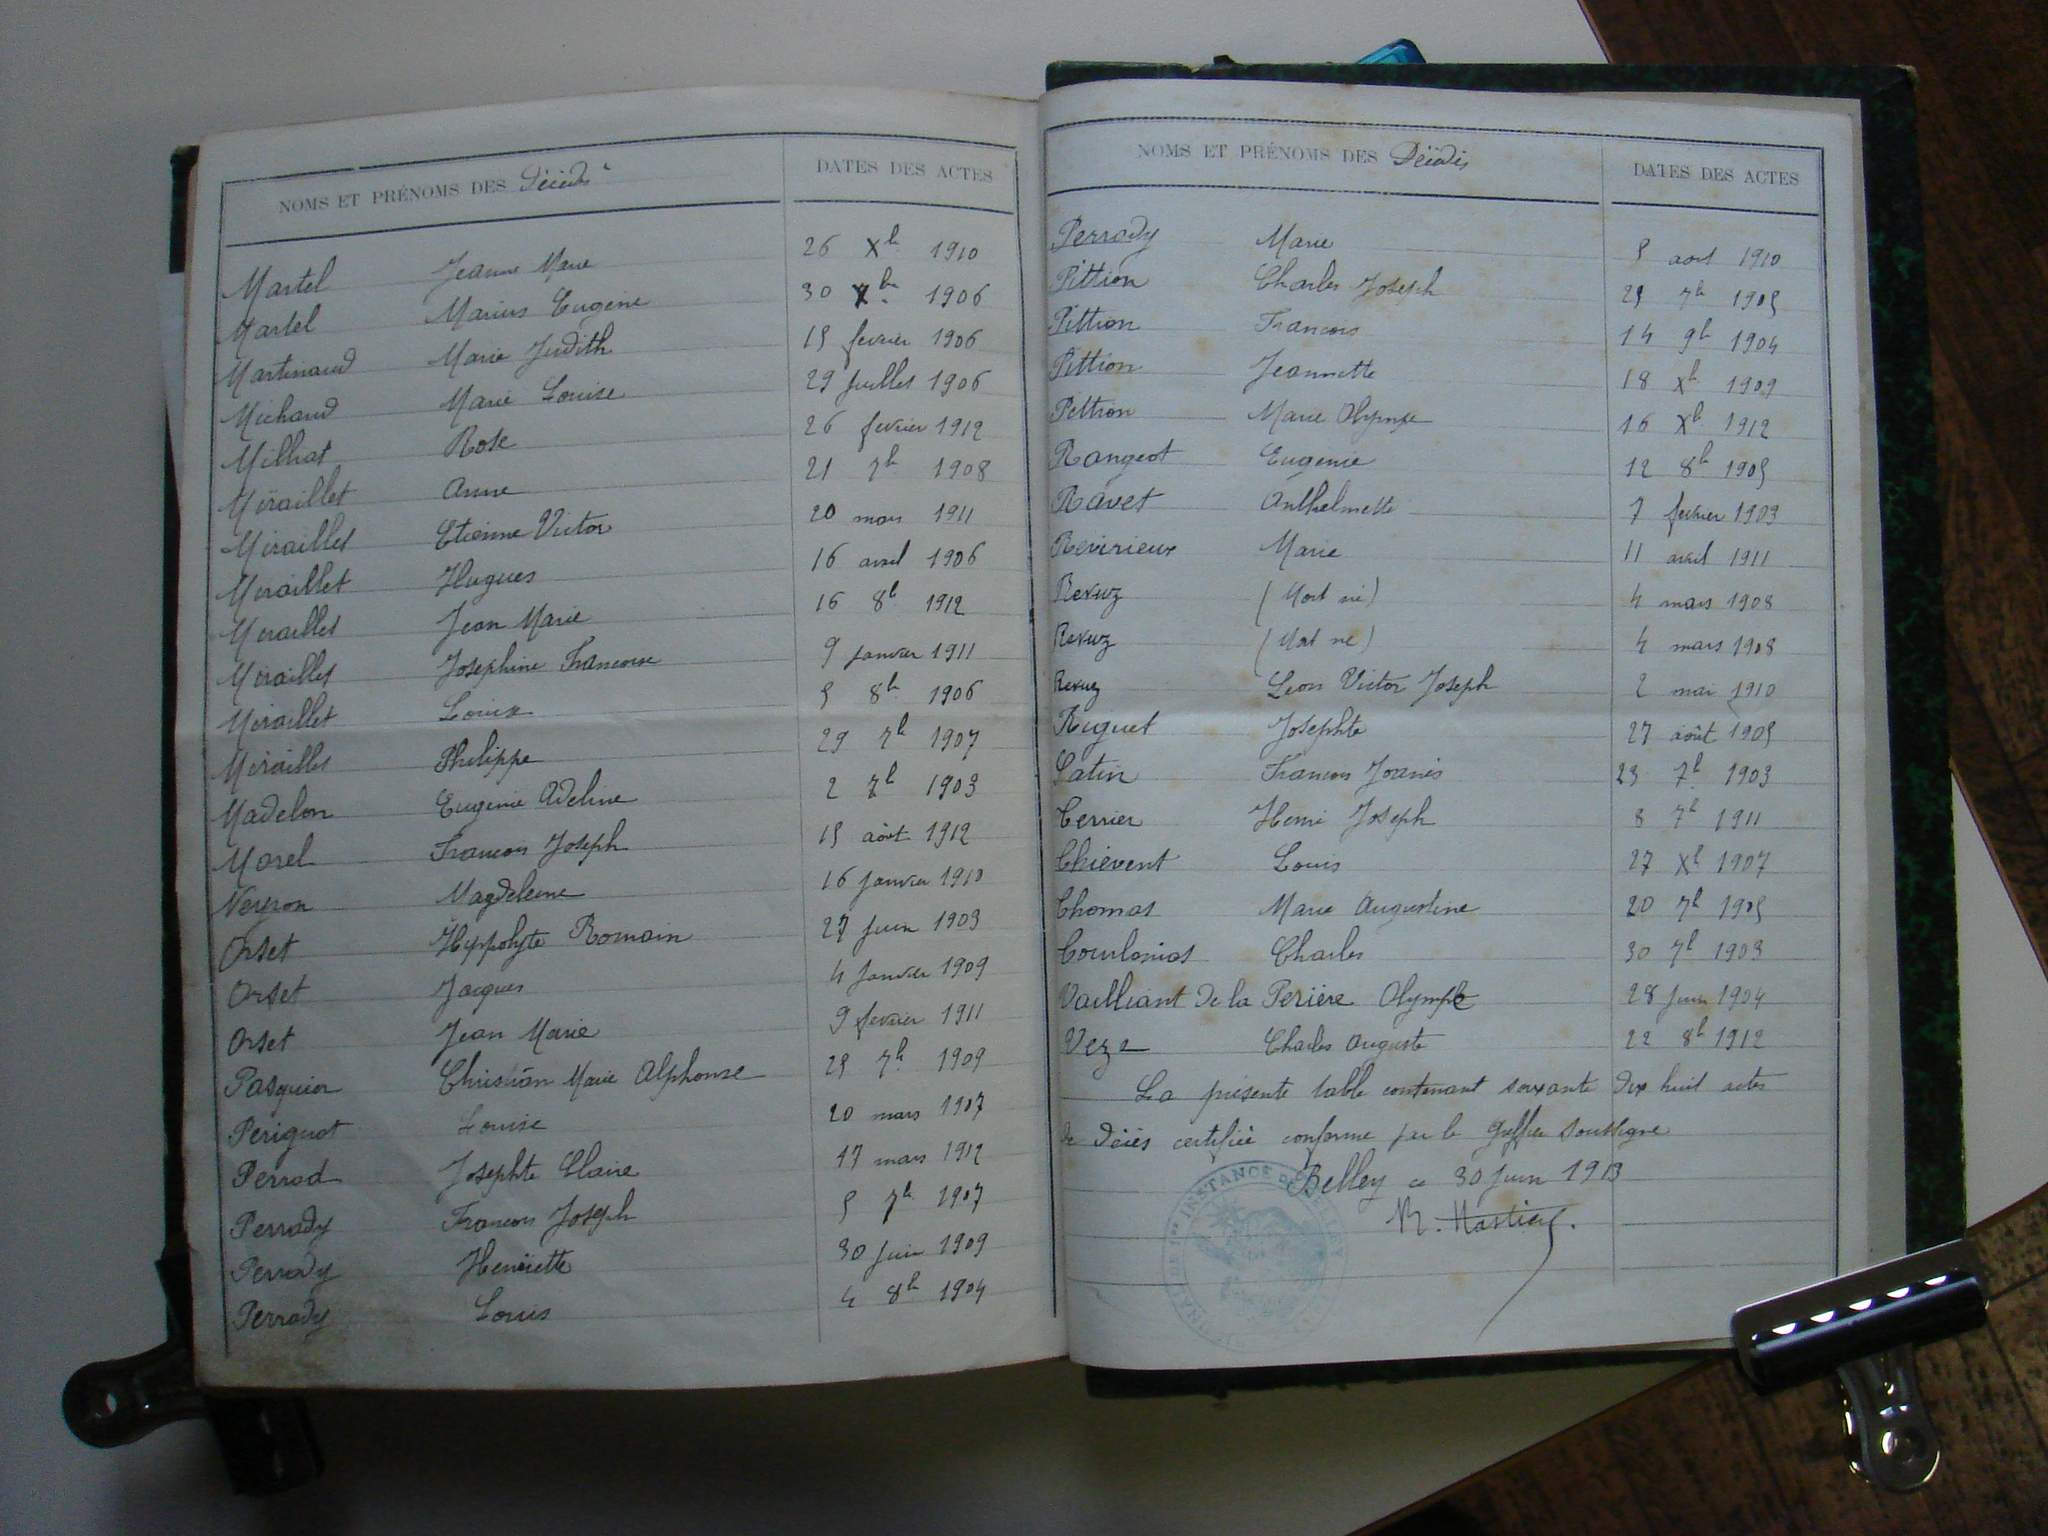 NOMS ET PRÉNOMS DES Décédés DATES DES ACTES
Martel Jeanne Marie 26 Xb 1910
Martel Marius Eugène 30 Xbre 1906
Martinaud Marie Judith 15 fevrier 1906
Michaud Marie Louise 29 Juillet 1906
Milhat Rose 26 fevrier 1912
Miraillet Anne 21 7b 1908
Miraillet Etienne Victor 20 mars 1911
Miraillet Hugues 16 avril 1906
Miraillet Jean Marie 16 8b 1912
Miraillet Josephine Francoise 9 Janvier 1911
Miraillet Louise 5 8b 1906
Miraillet Philippe 29 7b 1907
Madelon Eugenie Adeline 2 7b 1903
Morel Francois Joseph 15 août 1912
Neyron Magdeleine 16 Janvier 1910
Orset Hyppolyte Romain 27 Juin 1903
Orset Jacques 4 Janvier 1909
Orset Jean Marie 9 fevrier 1911
Pasquier Christian Marie Alphonse 25 7b 1909
Periguot Louise 20 mars 1907
Perrod Josephte Claire 17 mars 1912
Perrody Francois Joseph 5 7b 1907
Perrody Henriette 30 Juin 1909
Perrody Louis 4 8b 1904
NOMS ET PRÉNOMS DES Décédés DATES DES ACTES
Perrody Marie 5 aout 1910
Pittion Charles Joseph 25 7b 1905
Pittion Francois 14 9b 1904
Pittion Jeannette 18 Xb 1909
Pittion Marie Olympe 16 Xb 1912
Rangeot Eugenie 12 8b 1905
Ravet Anthelmette 7 fevrier 1903
Revirieux Marie 11 avril 1911
Revuz (Mort né) 4 mars 1908
Revuz (Mort né) 4 mars 1908
Revuz Leon Victor Joseph 2 mai 1910
Riguet Josephte 27 août 1905
Satin Francois Joanès 23 7b 1903
Terrier Henri Joseph 8 7b 1911
Thievent Louis 27 Xb 1907
Thomas Marie Augustine 20 7b 1905
Tourlonias Charles 30 7b 1903
Vailliant de la Perière Olympe 28 Juin 1904
Veze Charles Auguste 22 8b 1912
La présente table contenant soixante dix huit actes
de décès certifiée conforme par le Greffier soussigné
Belley ce 30 Juin 1913